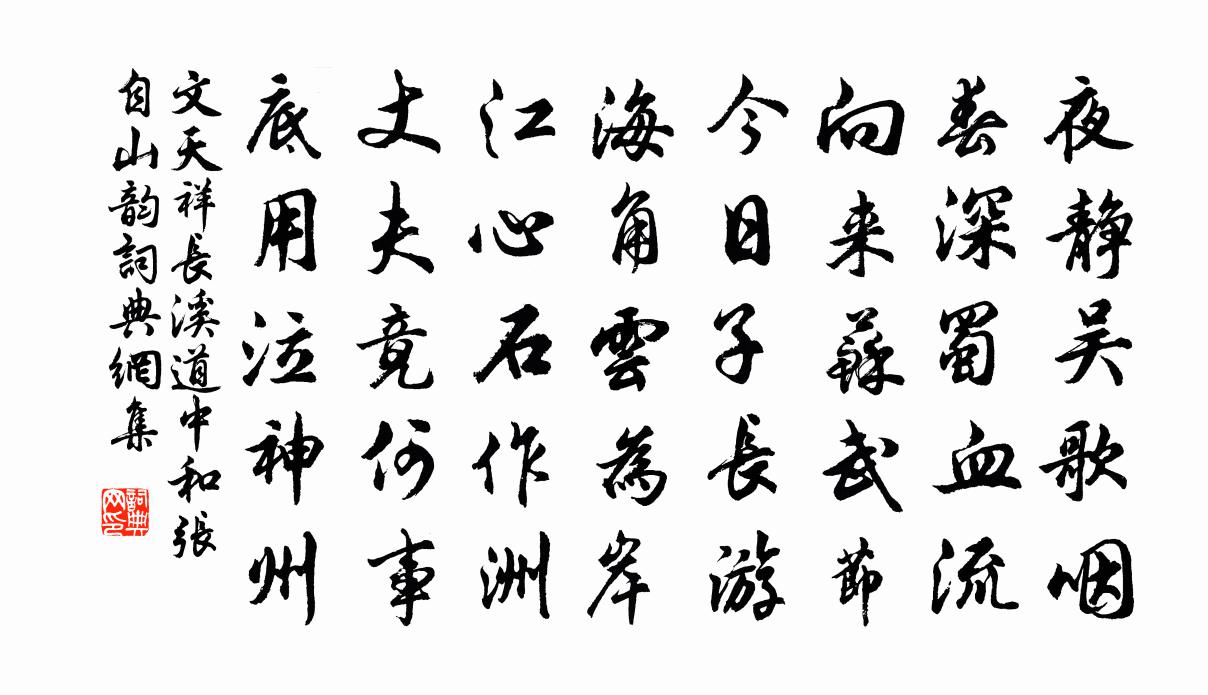 夜静吴歌咽
春深蜀血流
向来蘇武節
今日子長游
海角雲為岸
江心石作洲
丈夫竟何事
底用泣神州
文天祥長溪道中和張
自山韵詞典網集
詞典网印